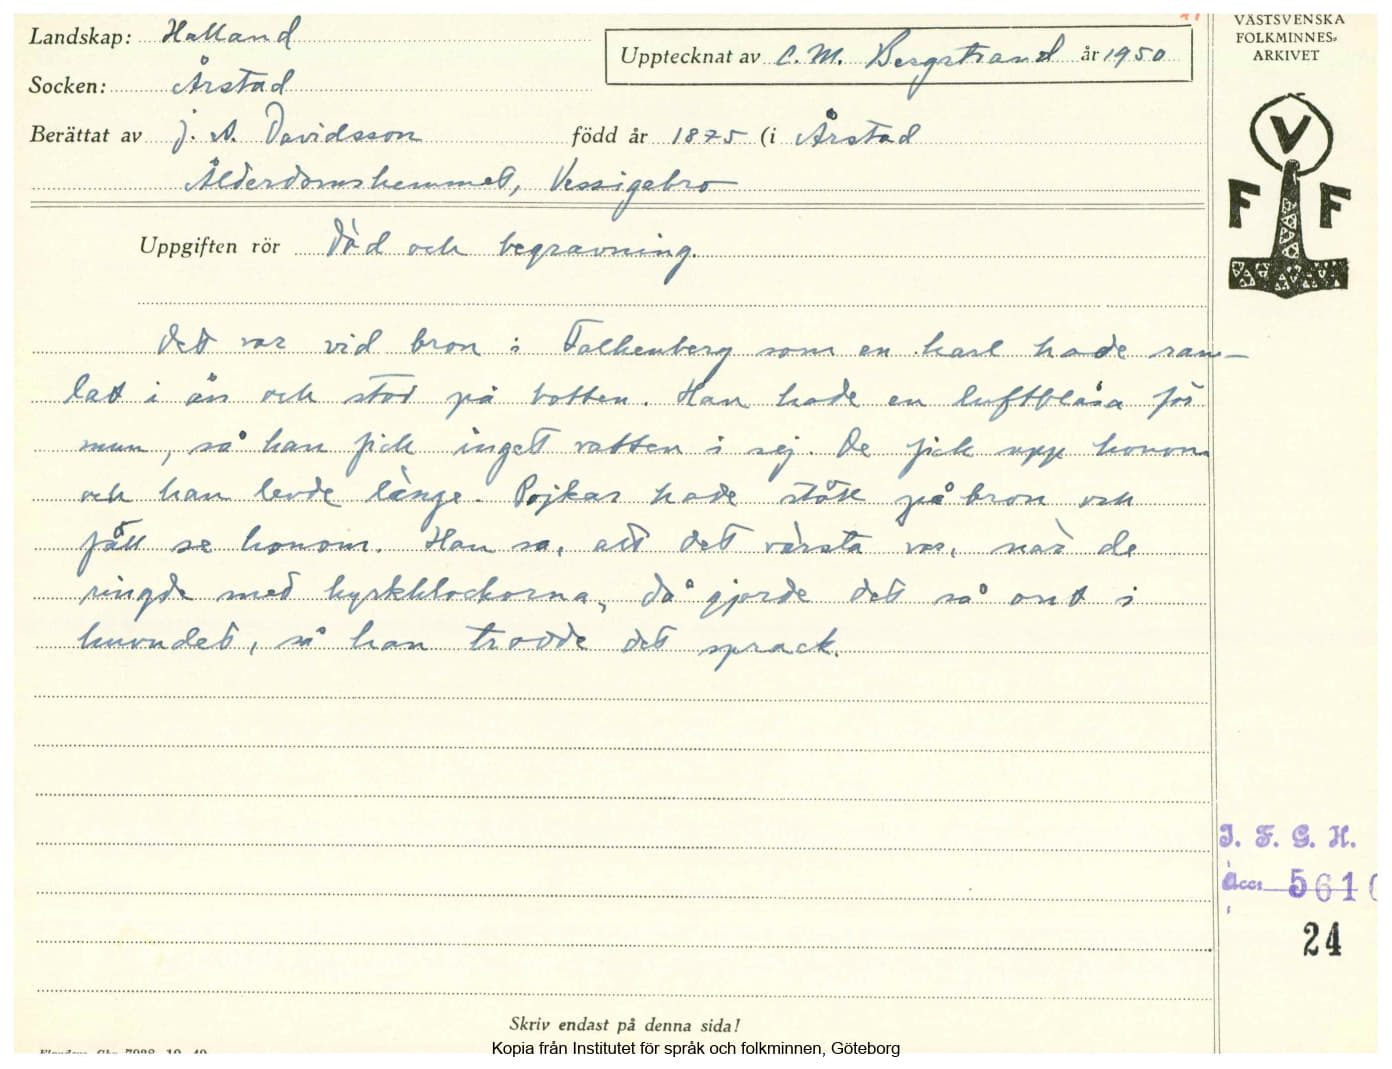 Landskap: Halland
Upptecknat av C. M. Bergstrand år 1950
VÄSTSVENSKA
FOLKMINNES-
ARKIVET
Socken: Årstad
Berättat av J. A. Davidsson född år 1875 (i Årstad
Ålderdomshemmet, Vessigebro
V
F F
Uppgiften rör Död och begravning.
Det var vid bron i Falkenberg som en karl hade ram-
lat i ån och stod på botten. Han hade en luftblåsa för
mun, så han fick inget vatten i sej. De fick upp honom
och han levde länge. Pojkar hade stått på bron och
fått se honom. Han sa, att det värsta var, när de
ringde med kyrkklockorna, då gjorde det så ont i
huvudet, så han trodde det sprack.
I. F. G. H.
Acc: 561
24
Skriv endast på denna sida!
Kopia från Institutet för språk och folkminnen, Göteborg